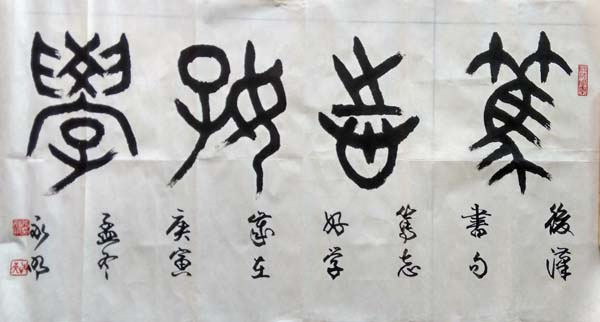 篤志好學
後漢
書句
篤志
好学
歲在
庚寅
孟冬
永